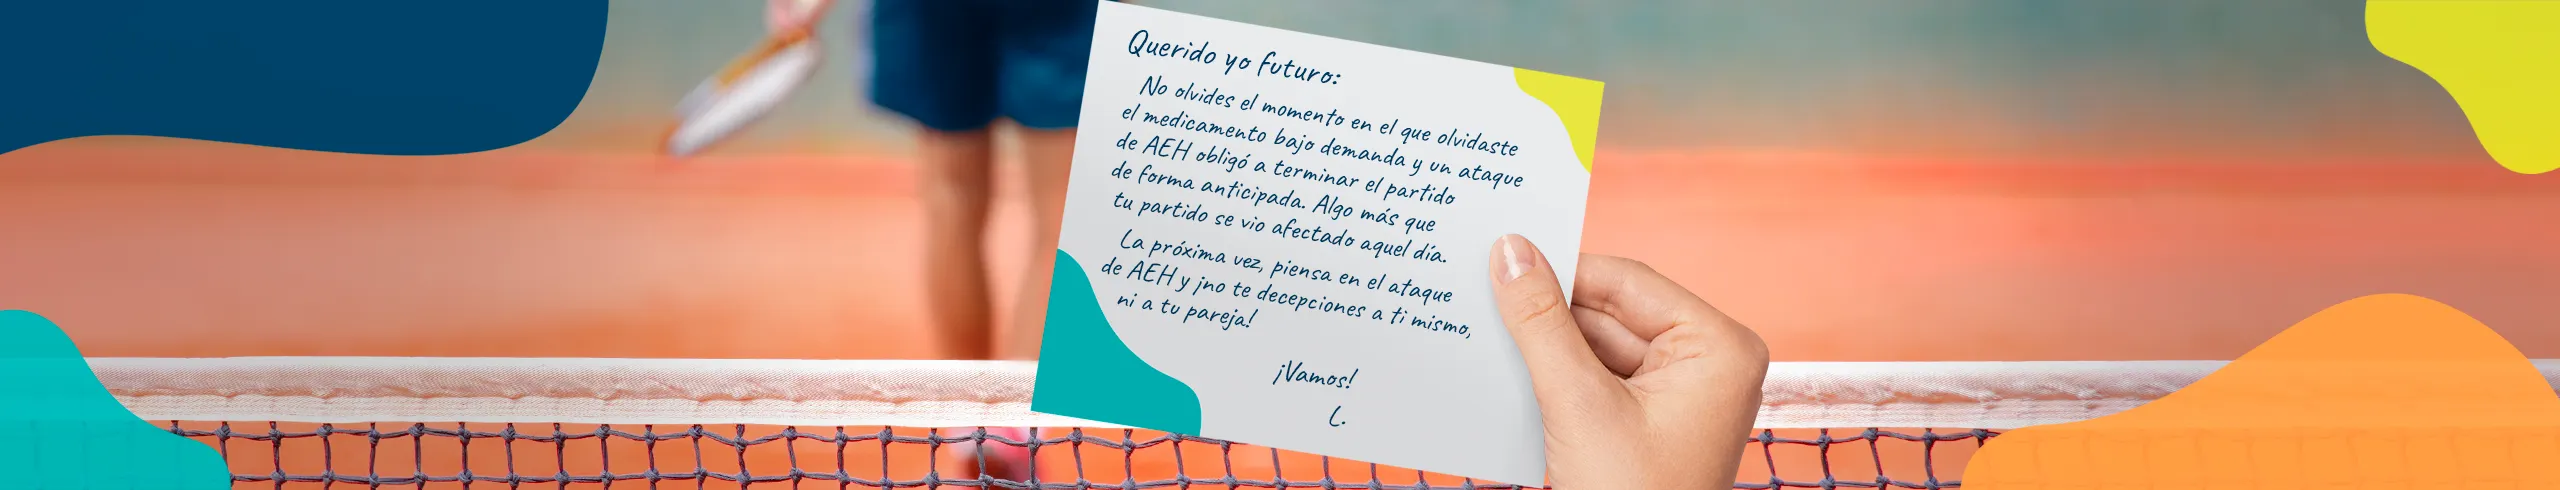 Querido yo futuro:
No olvides el momento en el que olvidaste
el medicamento bajo demanda y un ataque
de AEH obligó a terminar el partido
de forma anticipada. Algo más que
tu partido se vio afectado aquel día.
La próxima vez, piensa en el ataque
de AEH y ¡no te decepciones a ti mismo,
ni a tu pareja!
¡Vamos!
L.